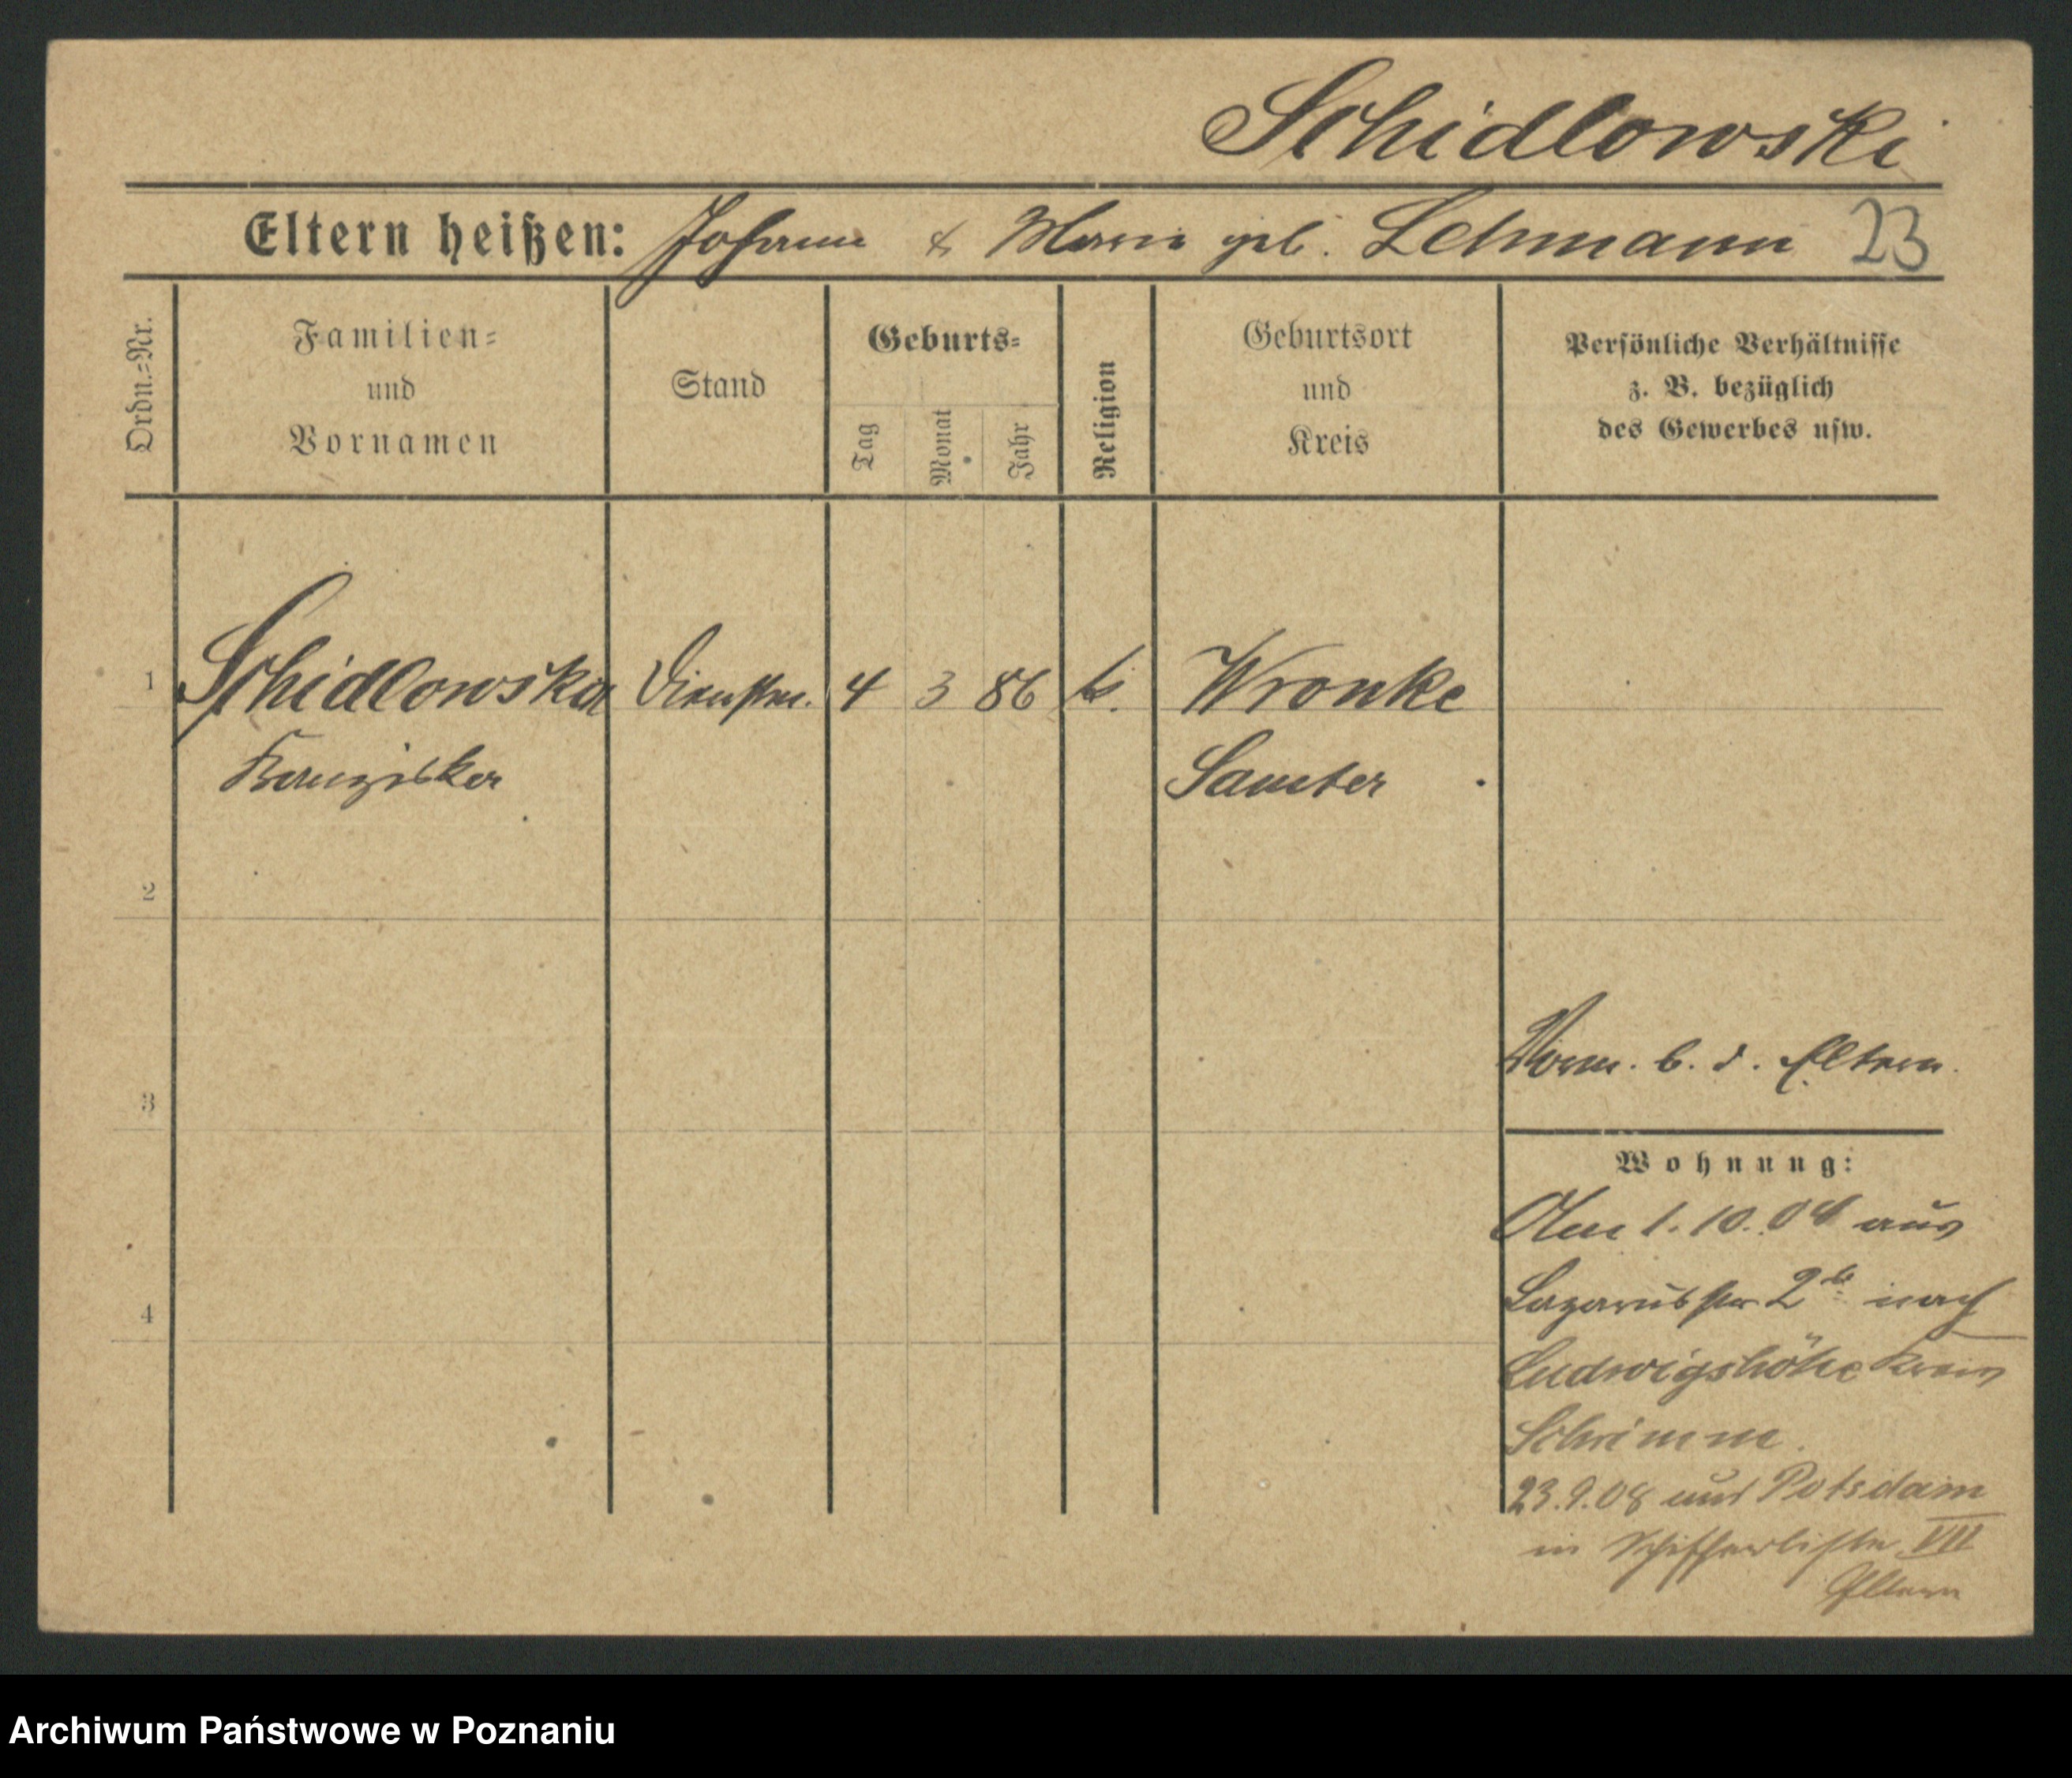 Schidlowski
Eltern heißen: Johann & Marie geb. Lehmann 23
Ordn.=Nr.
Familien=
und
Vornamen
Stand
Geburts=
Tag
Monat
Jahr
Religion
Geburtsort
und
Kreis
Persönliche Verhältnisse
z. B. bezüglich
des Gewerbes usw.
1 Schidlowska Dienstm. 4 3 86 k. Wronke
Franziska Samter
2
3
4
Vorm. b. d. Eltern.
Wohnung:
Am 1.10.08 aus
Lazarusstr 2 b nach
Ludwigshöhe Kreis
Schrimm.
23.9.08 aus Potsdam
in Schifferliste VII
Eltern
Archiwum Państwowe w Poznaniu